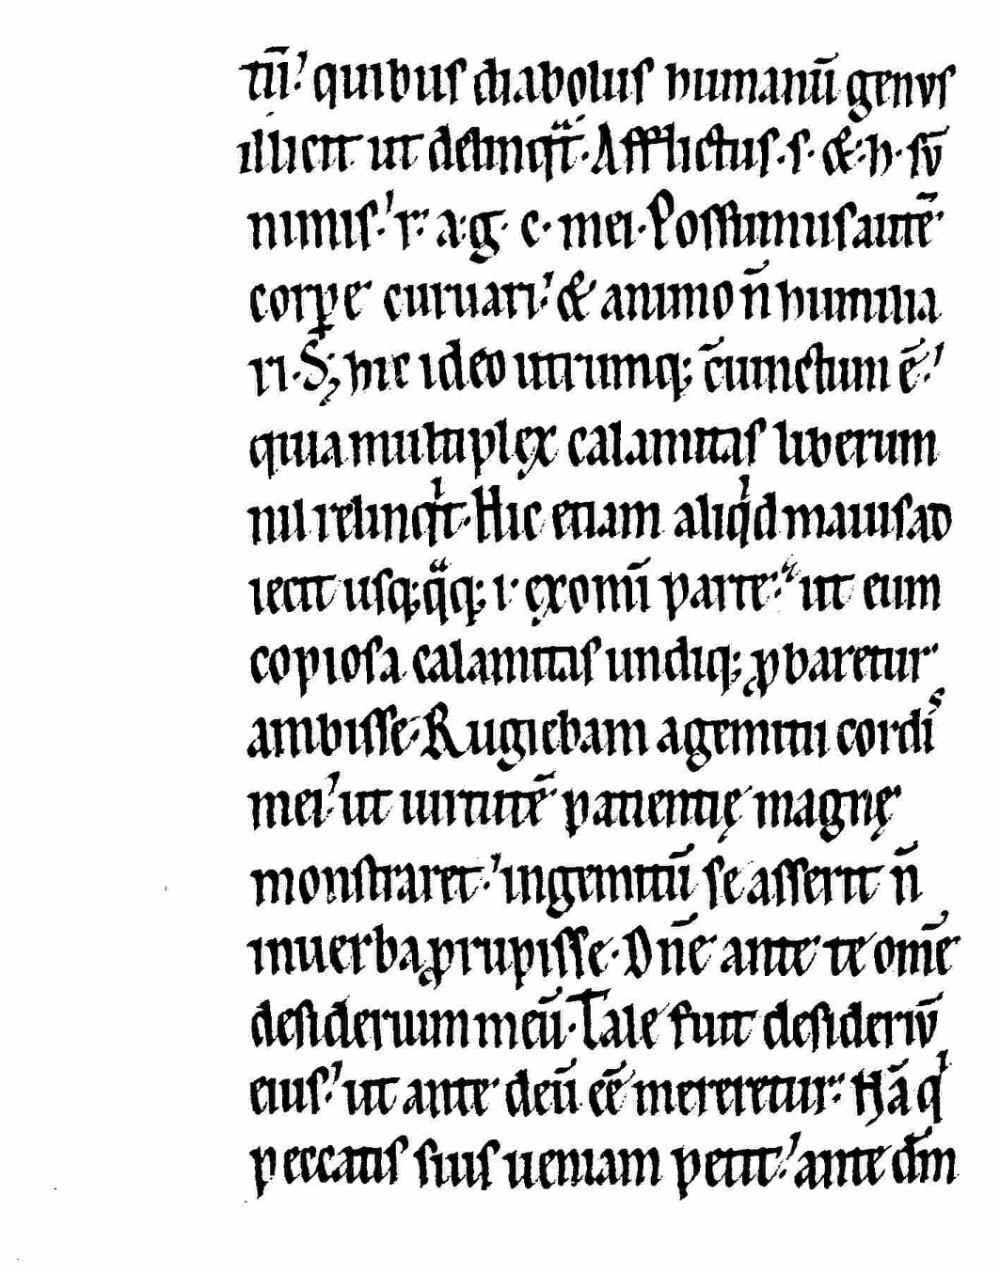 tūī. quibus diabolus humanū genus
illicit ut delinqᷓt. Afflictus. s. &. h. sū
nimis. r. a. g. c. mei. Possumus autē
corꝑe curuari. & animo n̄ humilia
ri. S; hic ideo utrumq; c̄iunctum ē.
quia multiplex calamitas liberum
nil relinqͥt. Hic etiam aliqͥd maius ad
iecit usq;qᷓq; i. ex omī parte. ut eum
copiosa calamitas undiq; ꝓbaretur
ambisse. Rugiebam a gemitu cordis
mei. ut uirtutē patientię magnę
monstraret. in gemitū se asserit n̄
in uerba ꝓrupisse. Dn̄e ante te om̄e
desiderium meū. Tale fuit desideriū
eius. ut ante deū eē mereretur. Nā qͥ
peccatis suis ueniam petit. ante dm̄